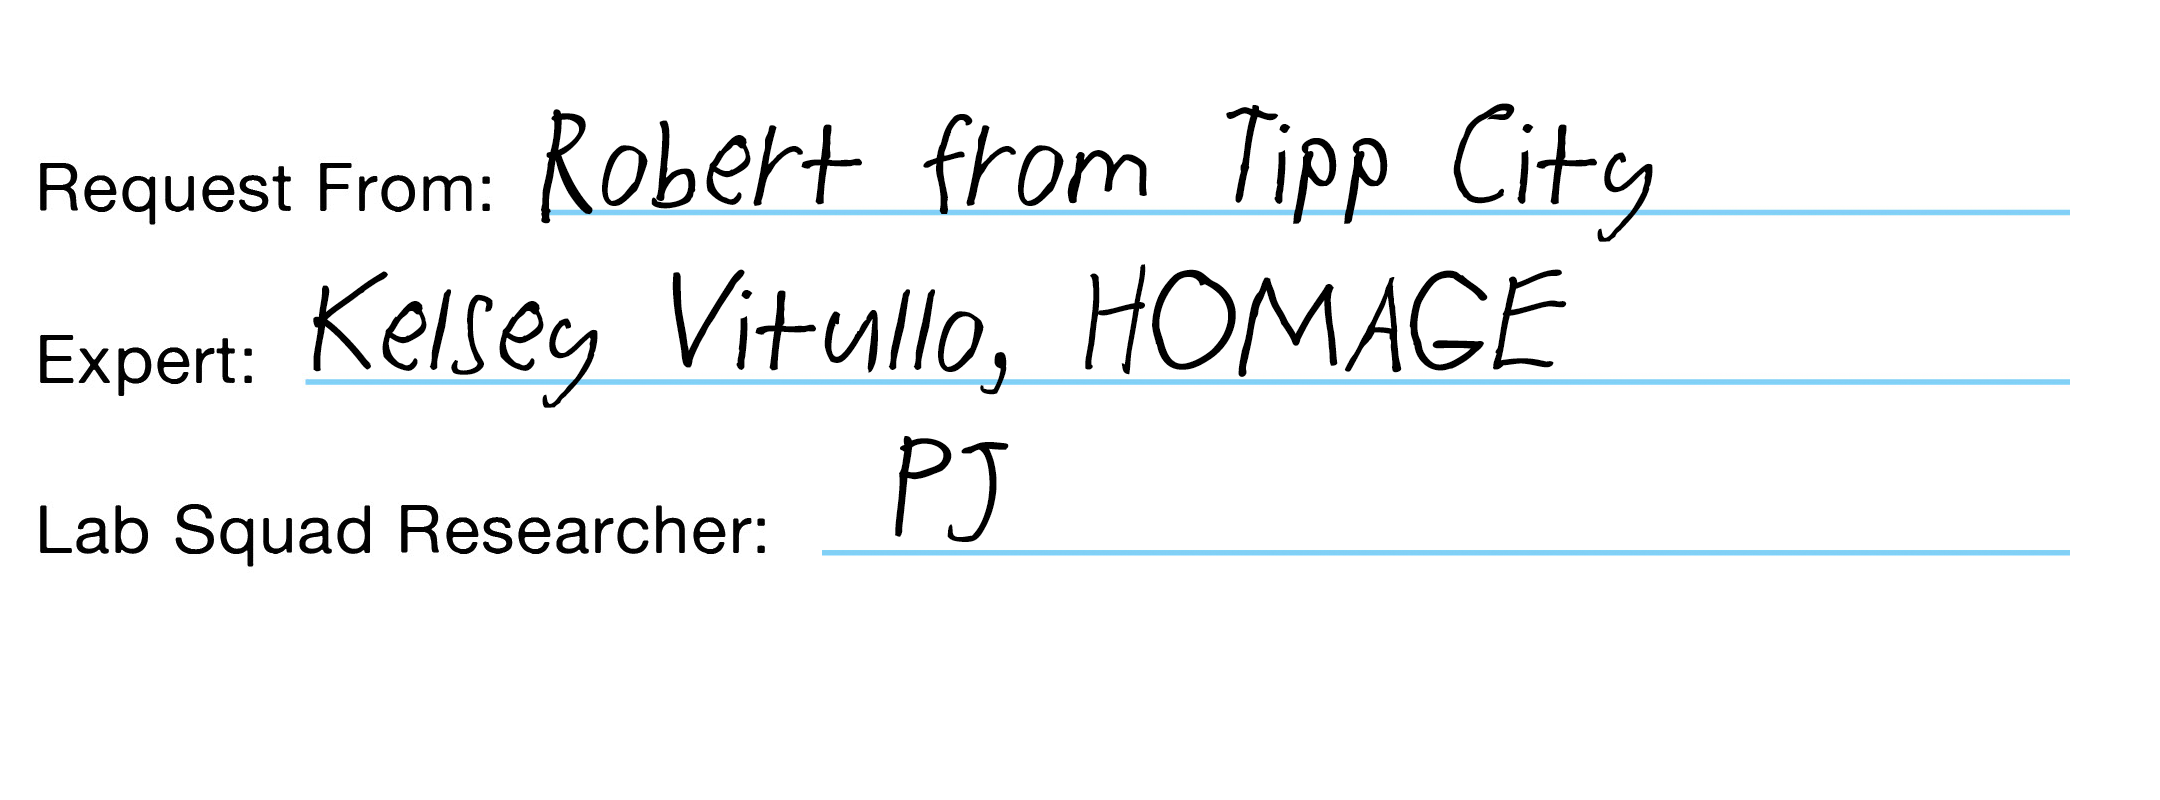 Request From: Robert from Tipp City
Expert: Kelsey Vitullo, HOMAGE
Lab Squad Researcher: PJ